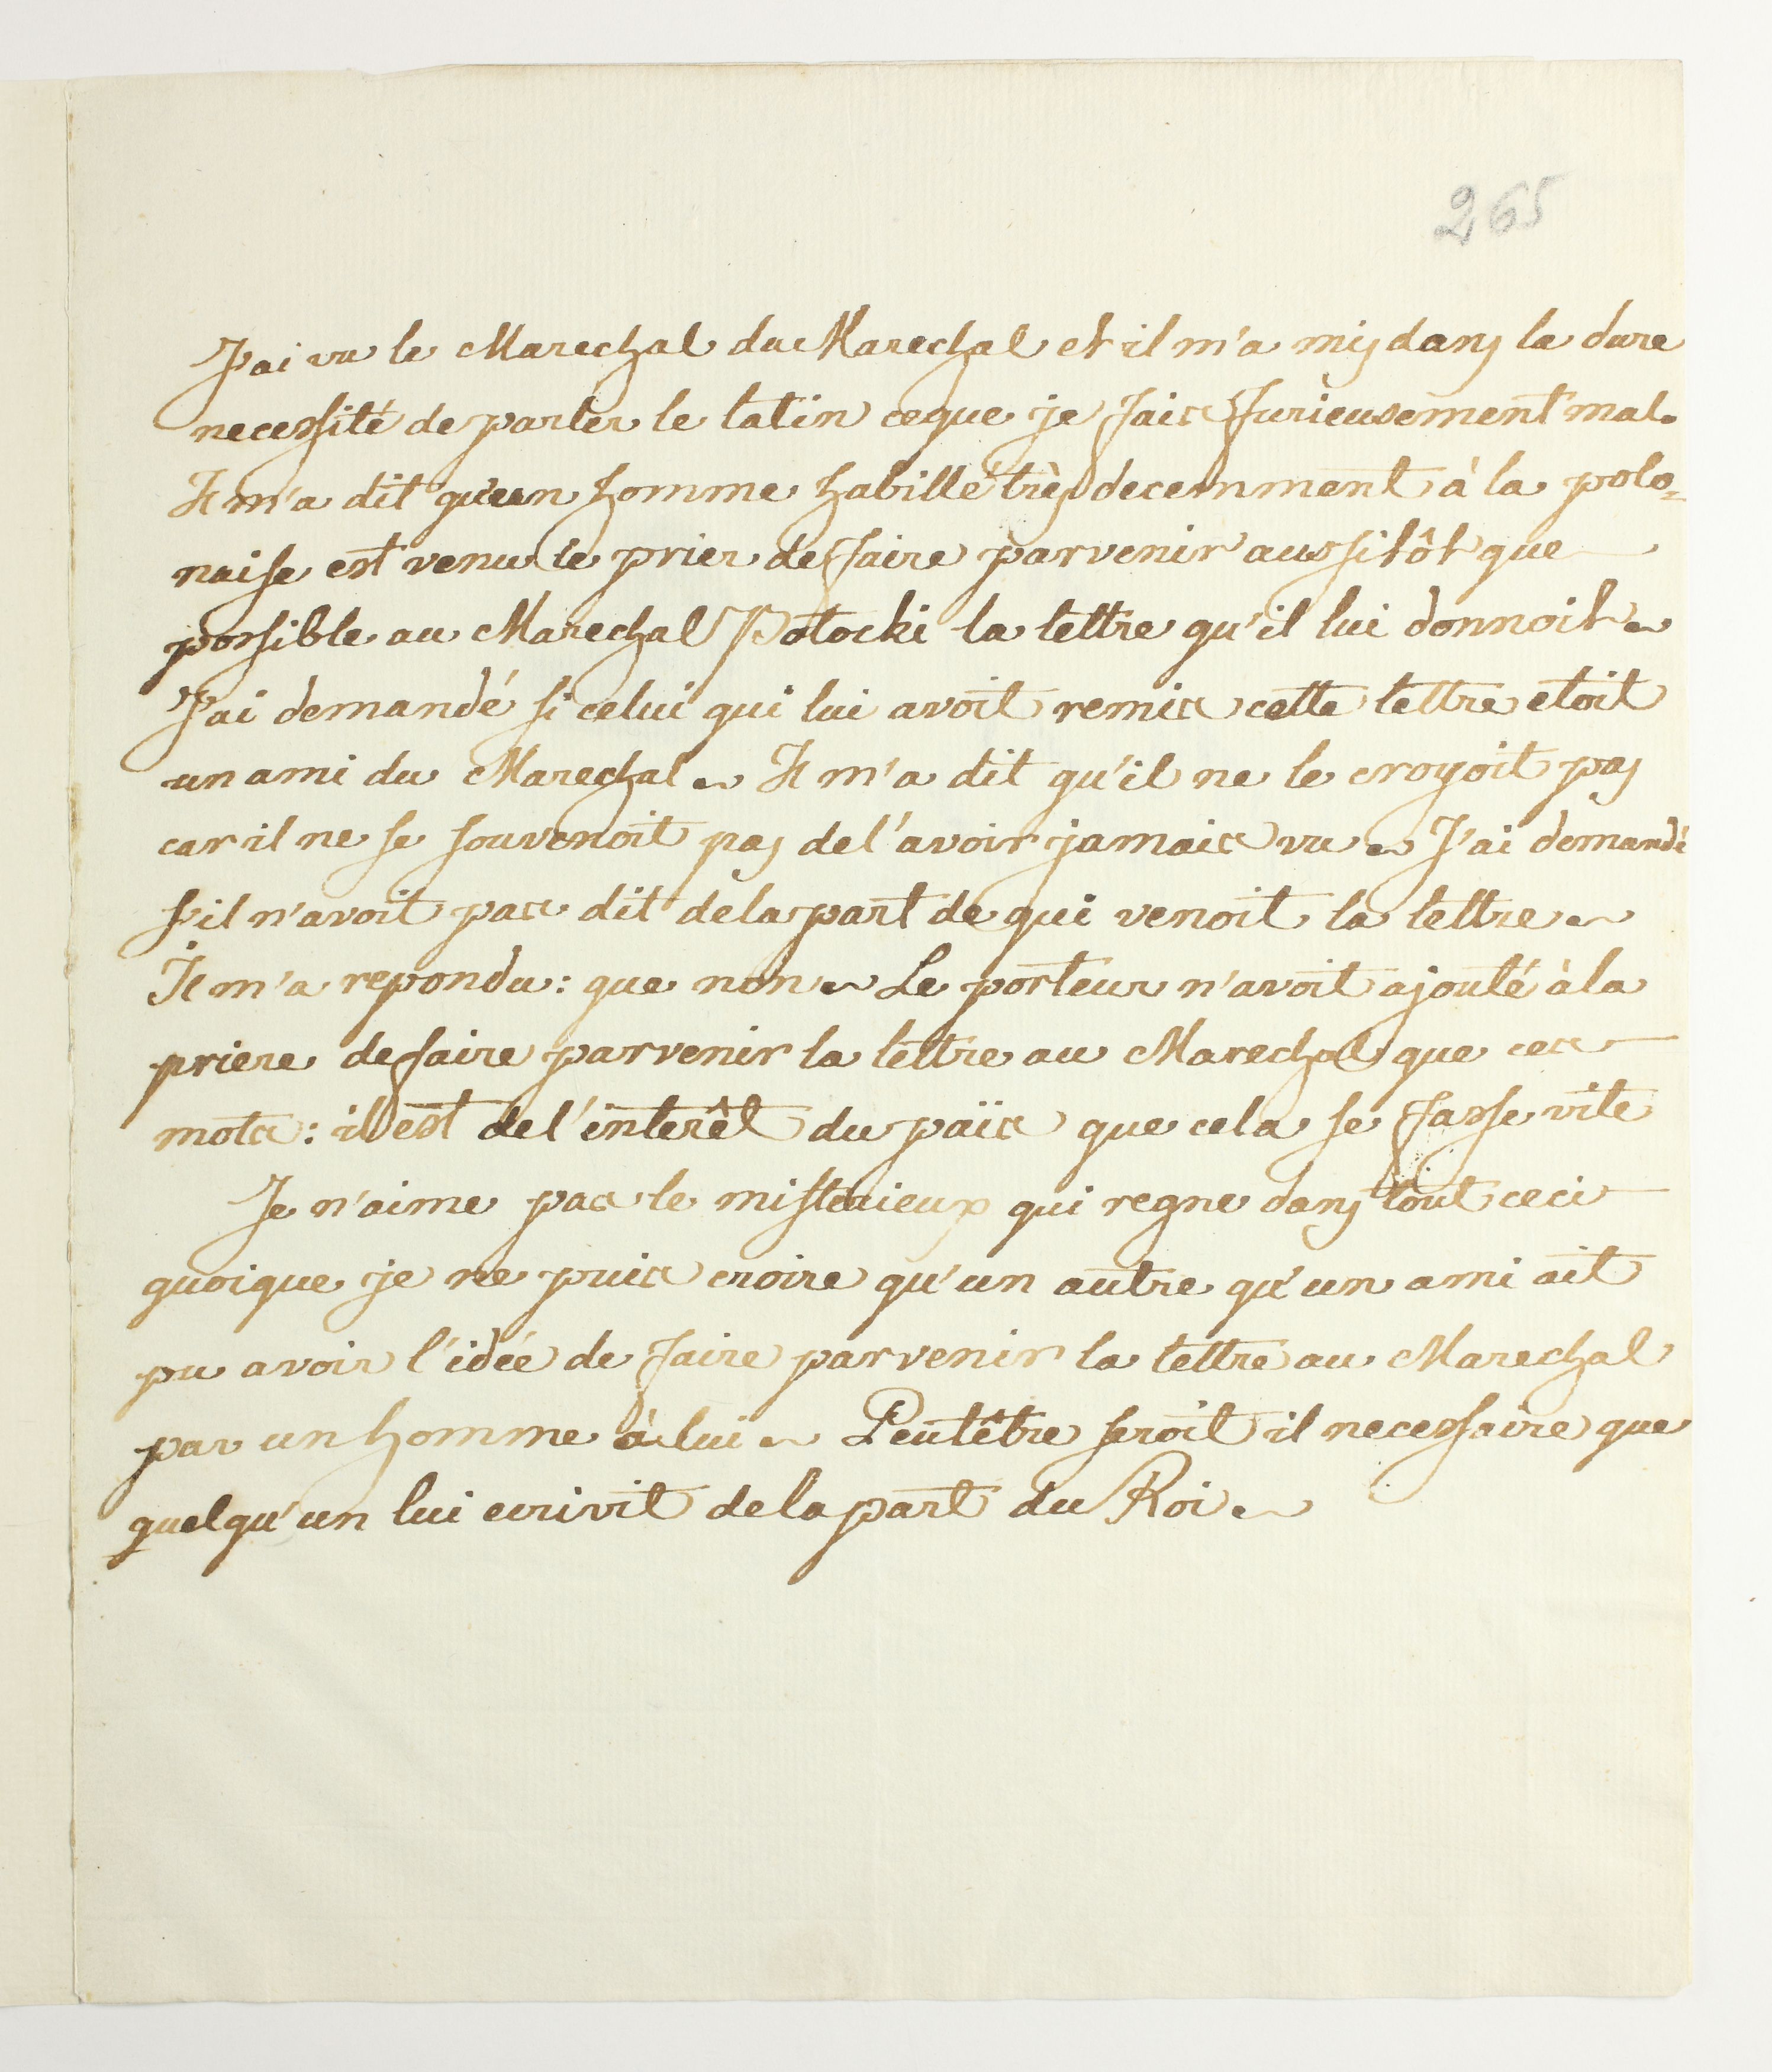 265
J'ai vu le Marechal du Marechal et il m'a mis dans la dure
necessité de parler le latin ceque je fais furieusement mal.
Il m'a dit qu'un homme habillé très decemment à la polo=
naise est venu le prier de faire parvenir aussitôt que
possible au Marechal Potocki la lettre qu'il lui donnoit.
J'ai demandé si celui qui lui avoit remis cette lettre etoit
un ami du Marechal. Il m'a dit qu'il ne le croyoit pas
car il ne se souvenoit pas de l'avoir jamais vu. J'ai demandé
s'il n'avoit pas dit de la part de qui venoit la lettre.
Il m'a repondu: que non. Le porteur n'avoit ajouté à la
priere de faire parvenir la lettre au Marechal que ces
mots: il est de l'interêt du païs que cela se fasse vite
Je n'aime pas le misterieux qui regne dans tout ceci
quoique je ne puis croire qu'un autre qu'un ami ait
pu avoir l'idée de faire parvenir la lettre au Marechal
par un homme à lui. Peutêtre seroit il necessaire que
quelqu'un lui ecrivit de la part du Roi.